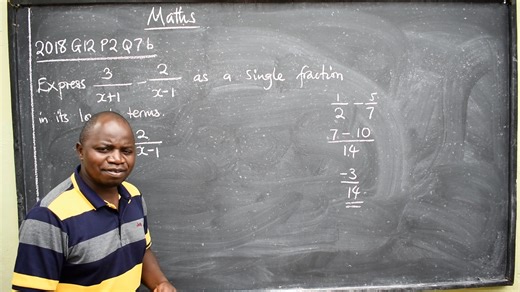 Maths
2018 G12 P2 Q7b
Express 3/(x+1) - 2/(x-1) as a single fraction
in its terms.
2/(x-1)
1/2 - 5/7
(7 - 10)/14
-3/14